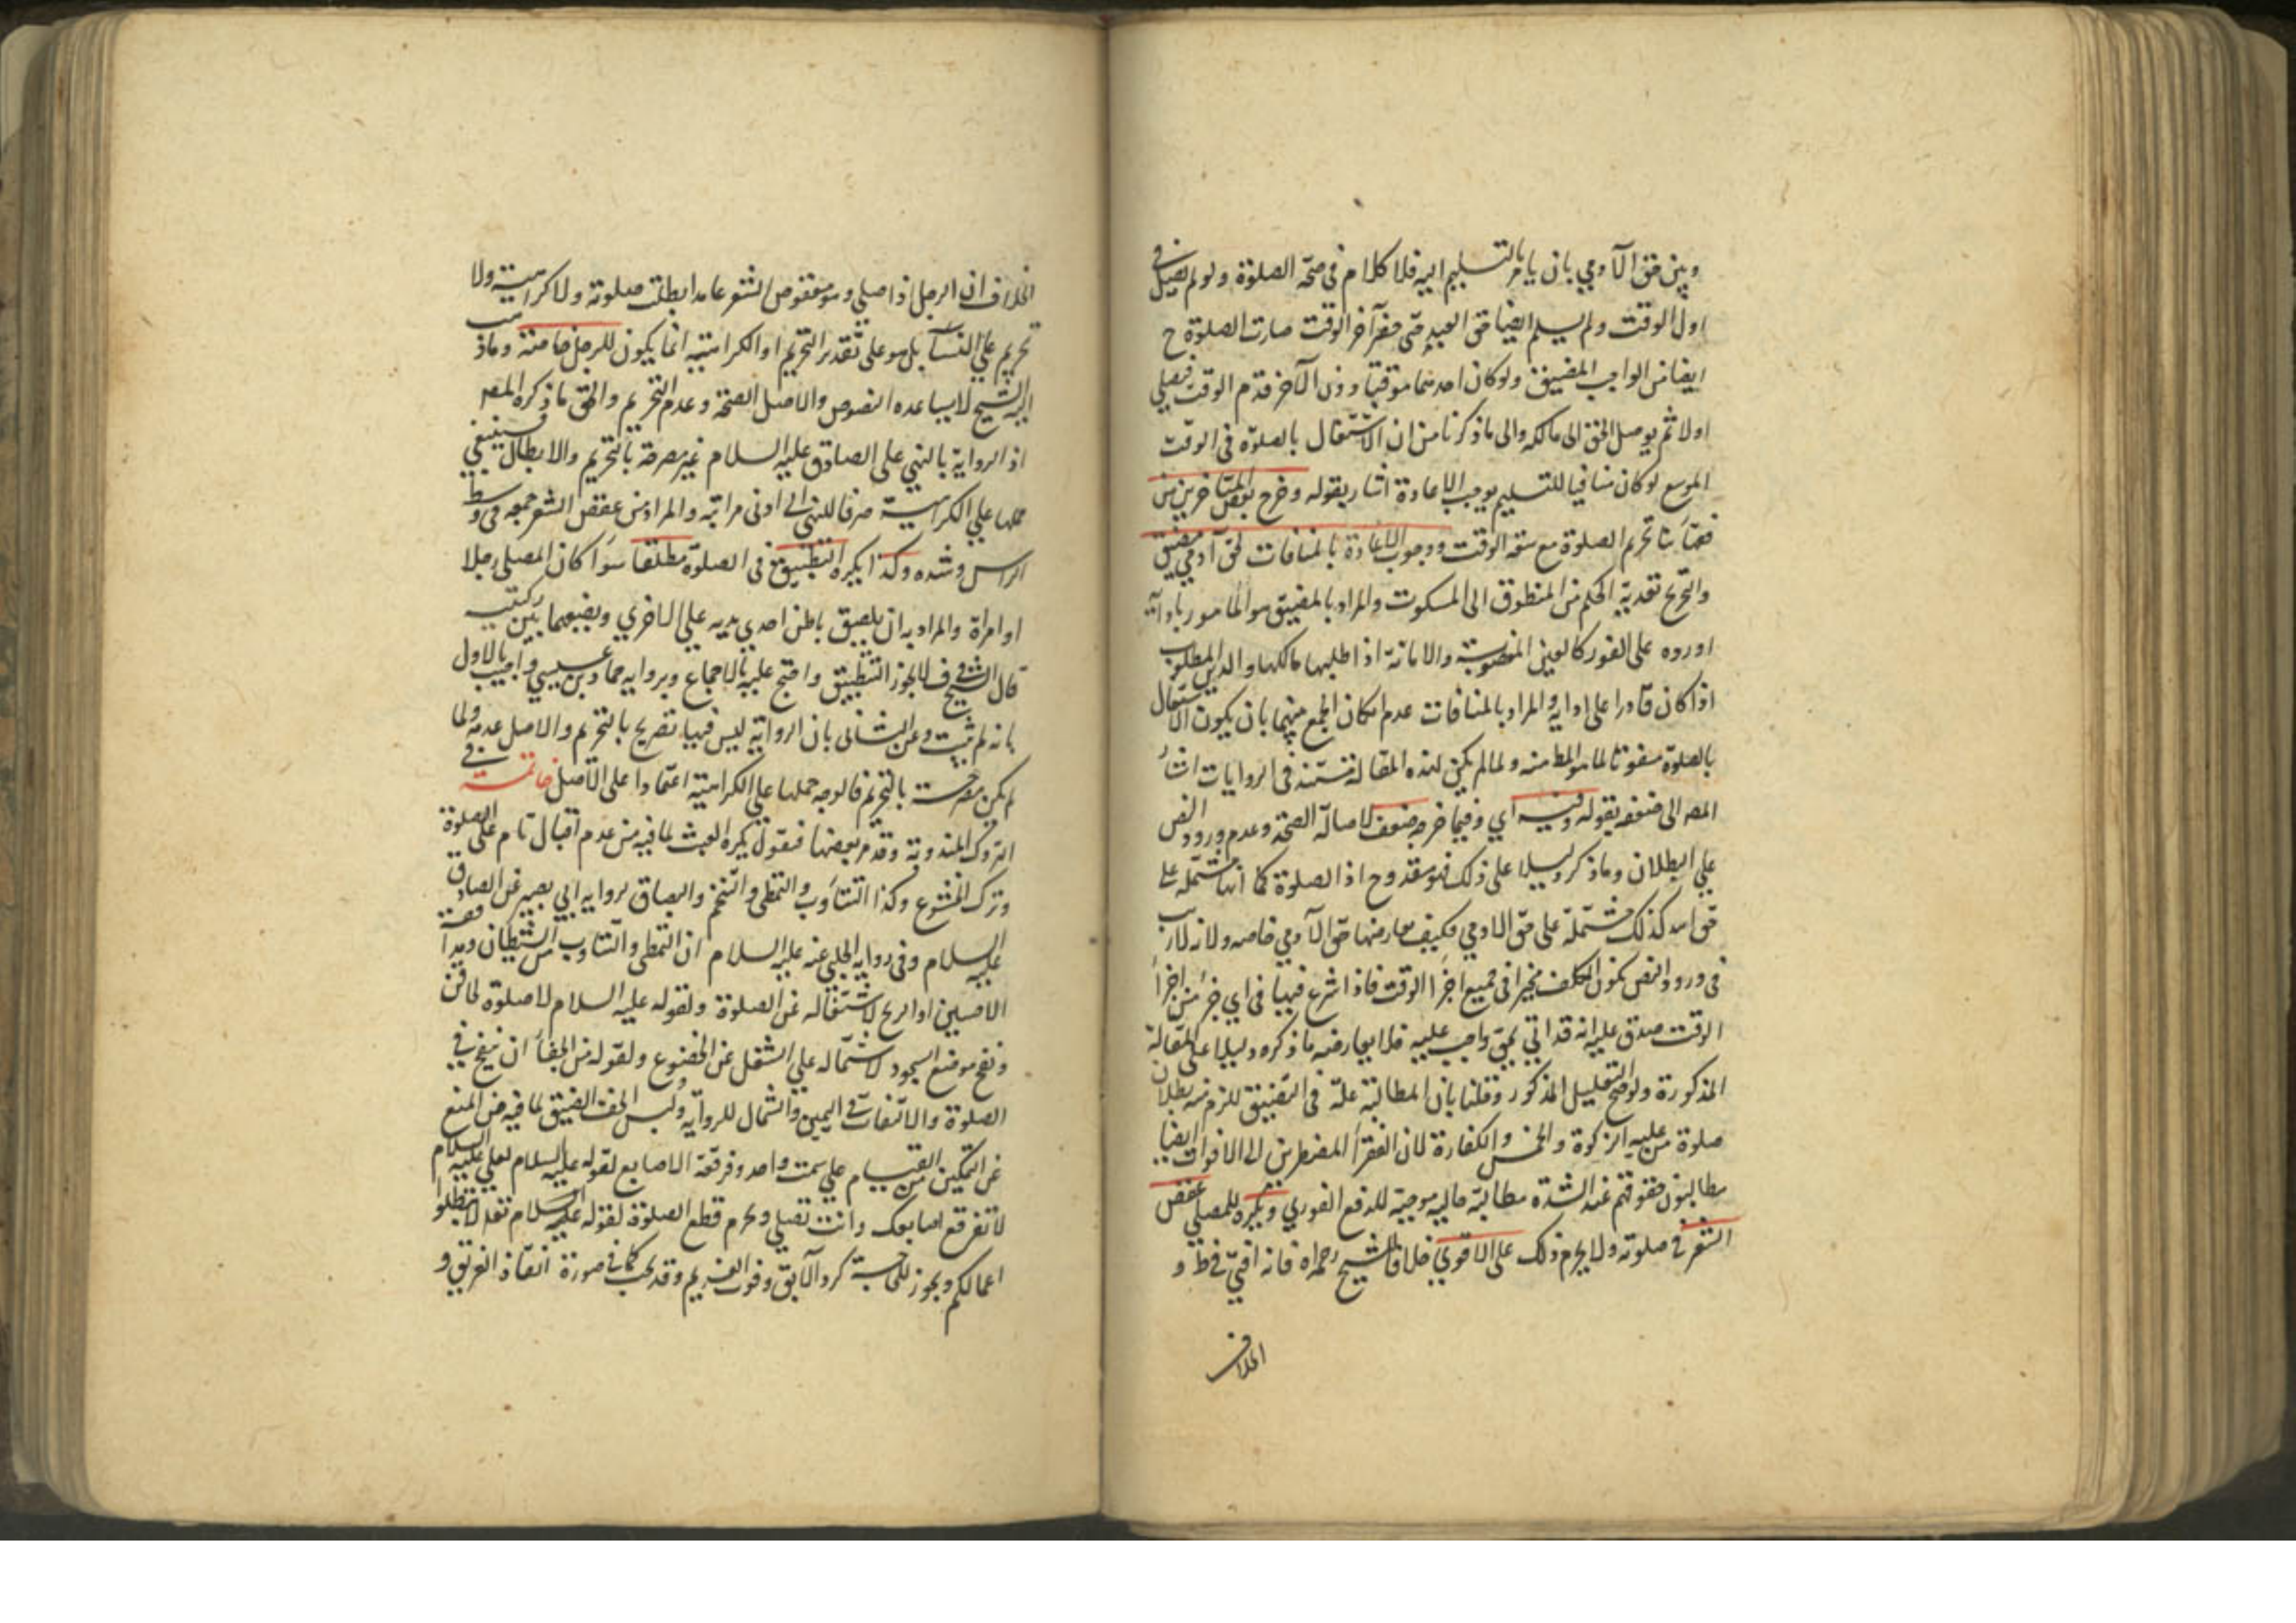 وبين حق الآدمي بان يامر بالتسليم اليه فلا كلام في صحة الصلوة ولو لم يصل في
اول الوقت ولم يسلم ايضا حق العبد حتى حضر آخر الوقت صارت الصلوة ح
ايضا من الواجب المضيق ولو كان احدهما موقتا دون الآخر قدم الوقت فيصلي
اولا ثم يوصل الحق الى مالكه والى ما ذكرنا من ان الاشتغال بالصلوة في الوقت
الموسع لو كان منافيا للتسليم يوجب الاعادة اشار بقوله وخرج بعض المتاخرين من
فقهائنا تحريم الصلوة مع سعة الوقت ووجوب الاعادة بالمنافات لحق آدمي مضيق
والتخريج تقدية الحكم من المنطوق الى المسكوت والمراد بالمضيق هو المامور بادائه
او رده على الفور كالعين المغصوبة والامانة اذا طلبها مالكها والدين المطلوب
اذا كان قادرا على ادايه والمراد بالمنافات عدم امكان الجمع بينهما بان يكون الاشتغال
بالصلوة مفوتا لما هو المطا منه ولما لم يكن لهذه المقالة مستند في الروايات اشار
المصه الى ضعفه بقوله وفيه اي وفيما خرجه ضعف لاصالة الصحة وعدم ورود النص
على البطلان وما ذكر دليلا على ذلك فهو مقدوح اذ الصلوة كما انها مشتملة على
حق الله كذلك مشتملة على حق الادمي فكيف يعارضها حق الآدمي خاصه ولانه لا ريب
في ورود النص بكون المكلف مخيرا في جميع اجزاء الوقت فاذا شرع فيها في اي جزء من اجزاء
الوقت صدق عليه انه قد اتى بحق واجب عليه فلا يعارضه ما ذكره دليلا على المقالة
المذكورة ولو صح التعليل المذكور وقلنا بان المطالبة علة في التضييق للزم منه بطلان
صلوة من عليه الزكوة والخمس والكفارة لان الفقراء المضطرين الى الاقوات ايضا
مطالبون حقوقهم عند الشدة مطالبة حالية موجبة للدفع الفوري ويكره للمصلي عقص
الشعر في صلوته ولا يحرم ذلك على الاقوى خلافا للشيخ رحمه الله فانه افتى في ط و
الخلاف
الخلاف ان الرجل اذا صلى وهو معقوص الشعر عامدا بطلت صلوته ولا كراهية ولا
تحريم على النساء بل هو على تقدير التحريم او الكراهية انما يكون للرجل خاصة وما ذهب
اليه الشيخ لا يساعده النصوص والاصل الصحة وعدم التحريم والحق ما ذكره المصه
اذ الرواية بالنهي على الصادق عليه السلام غير مصرحة بالتحريم والابطال فينبغي
حملها على الكراهية صرفا للنهي الى ادنى مراتبه والمراد من عقص الشعر جمعه في وسط
الراس وشده وكذا يكره التطبيق في الصلوة مطلقا سواء كان المصلي رجلا
او امراة والمراد به ان يلصق باطن احدي يديه على الاخري ويضعهما بين ركبتيه
قال الشيخ في ف لا يجوز التطبيق واحتج عليه بالاجماع وبرواية حماد بن عيسى واجيب بالاول
بانه لم يثبت وعن الثاني بان الرواية ليس فيها تصريح بالتحريم والاصل عدمه ولما
لم يكن مصرحة بالتحريم فالوجه حملها على الكراهية اعتمادا على الاصل خاتمة في
التروك المندوبة وقد مر بعضها فنقول يكره العبث لما فيه من عدم اقبال تام على الصلوة
وترك الخشوع وكذا التثاوب والتمطي والتنخم والبصاق لرواية ابي بصير عن الصادق
عليه السلام وفي رواية الحلبي عنه عليه السلام ان التمطي والتثاوب من الشيطان ومدافعة
الاخبثين او الريح لاشتغاله عن الصلوة ولقوله عليه السلام لا صلوة لحاقن
ونفخ موضع السجود لاشتماله على الشغل عن الخضوع ولقوله من الجفاء ان ينفخ في
الصلوة والالتفات في اليمين والشمال للرواية ولبس الخف الضيق لما فيه من المنع
عن التمكين من القيام على سمت واحد وفرقعة الاصابع لقوله عليه السلام لعلي عليه السلام
لا تفرقع اصابعك وانت تصلي ويحرم قطع الصلوة لقوله عليه السلام تعه لا تبطلوا
اعمالكم ويجوز للحاجة كرد الآبق وفوت الغريم وقد يجب كما في صورة انقاذ الغريق و